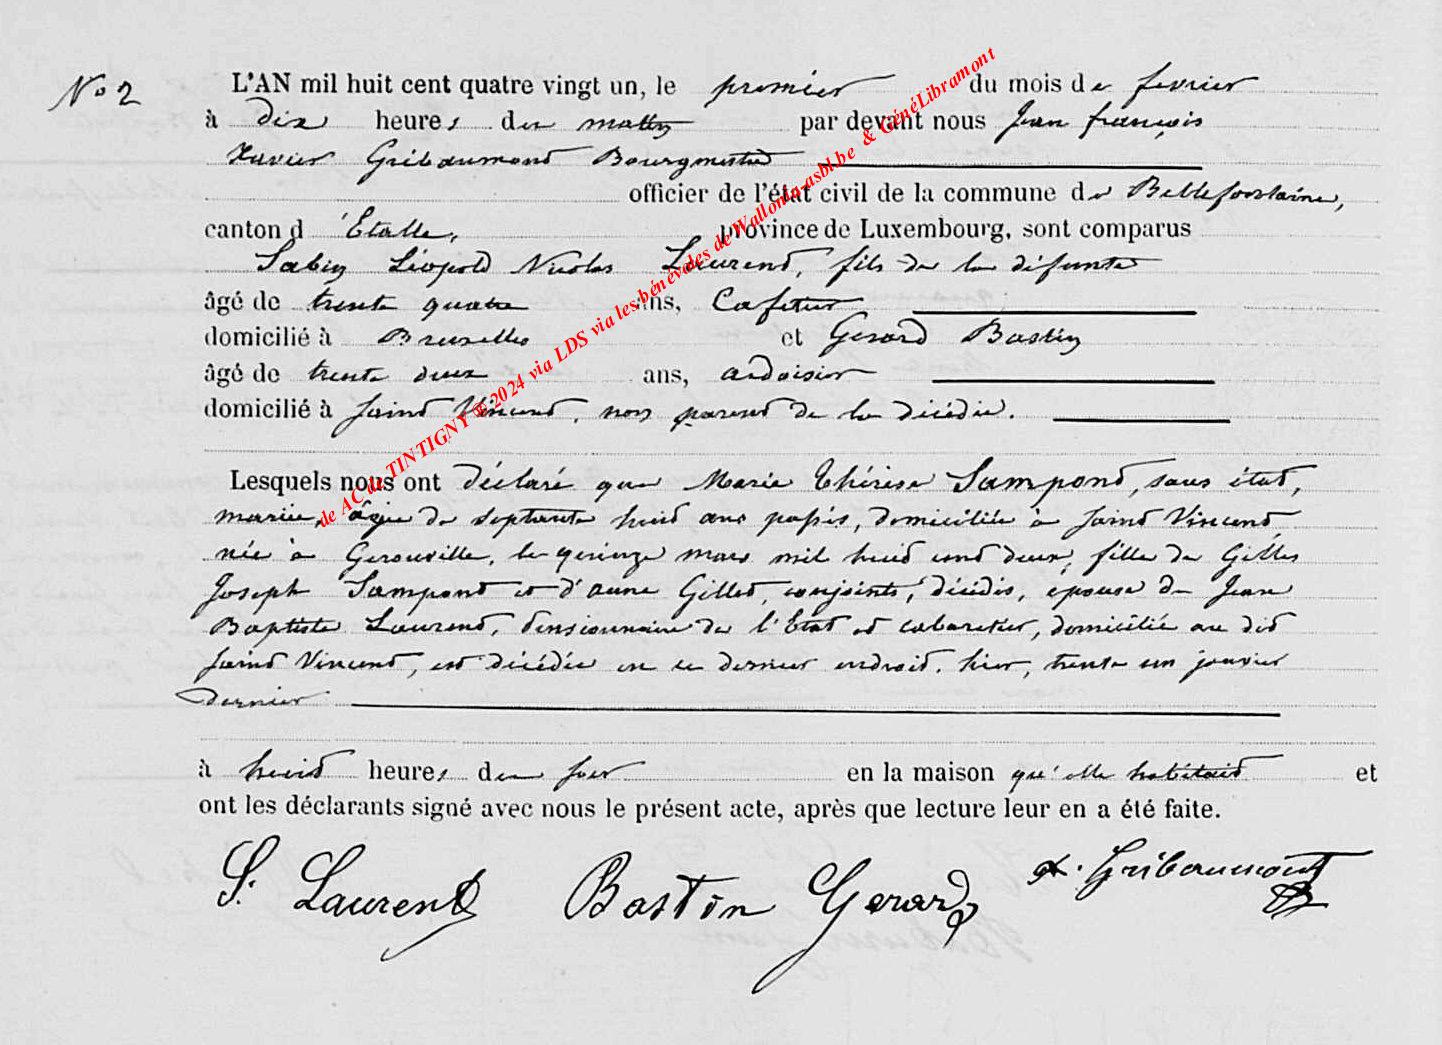 N° 2
L'AN mil huit cent quatre vingt un, le premier du mois de fevrier
à dix heures du matin par devant nous Jean françois
Xavier Gribaumont Bourgmestre
officier de l'état civil de la commune de Bellefontaine,
canton d'Etalle, province de Luxembourg, sont comparus
Sabin Léopold Nicolas Laurent, fils de la défunte
âgé de trente quatre ans, Cafetier
domicilié à Bruxelles et Gerard Bastin
âgé de trente deux ans, ardoisier
domicilié à Saint Vincent, non parent de la décédée.
Lesquels nous ont déclaré que Marie Thérèse Sampont, sans état,
mariée, âgée de septante huit ans passés, domiciliée à Saint Vincent,
née à Gerouville, le quinze mars mil huit cent deux, fille de Gilles
Joseph Sampont et d'anne Gillet, conjoints, décédés, épouse de Jean
Baptiste Laurent, pensionnaire de l'Etat et cabaretier, domicilié au dit
Saint Vincent, est décédée en ce dernier endroit, hier, trente un janvier
dernier
à huit heures du soir en la maison qu'elle habitait et
ont les déclarants signé avec nous le présent acte, après que lecture leur en a été faite.
S. Laurent Bastin Gerard X. Gribaumont
de AC de TINTIGNY © 2024 via LDS via les bénévoles de Wallonia-asbl.be & GénéLibramont